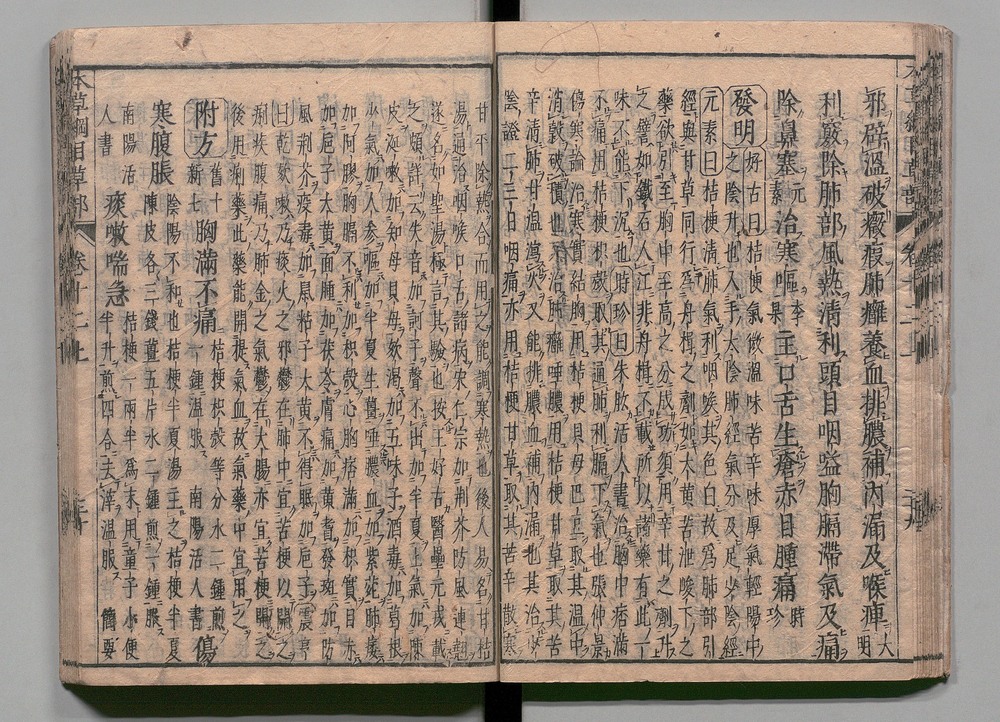 邪辟溫破癥瘕肺癰養血排膿補內漏及喉痺大明
利竅除肺部風熱清利頭目咽嗌胸膈滯氣及痛
除鼻塞元素治寒嘔李杲主口舌生瘡赤目腫痛時珍
發明好古曰桔梗氣微溫味苦辛味厚氣輕陽中
之陰升也入手太陰肺經氣分及足少陰經
元素曰桔梗清肺氣利咽喉其色白故為肺部引
經與甘草同行為舟楫之劑如大黃苦泄峻下之
藥欲引至胸中至高之分成功須用辛甘之劑升
之譬如鐵石入江非舟楫不載所以諸藥有此一
味不能下沉也時珍曰朱肱活人書治胸中痞滿
不痛用桔梗枳殼取其通肺利膈下氣也張仲景
傷寒論治寒實結胸用桔梗貝母巴豆取其溫中
消穀破積也又治肺癰唾膿用桔梗甘草取其苦
辛清肺甘溫瀉火又能排膿血補內漏也其治少
陰證二三日咽痛亦用桔梗甘草取其苦辛散寒
甘平除熱合而用之能調寒熱也後人易名甘桔
湯通治咽喉口舌諸病宋仁宗加荆芥防風連翹
遂名如聖湯極言其驗也按王好古醫壘元戎載
之頗詳云失音加訶子聲不出加半夏上氣加陳
皮涎嗽加知母貝母咳渴加五味子酒毒加葛根
少氣加人參嘔加半夏生薑唾膿血加紫菀肺痿
加阿膠胸膈不利加枳殼心胸痞滿加枳實目赤
加梔子大黃面腫加茯苓膚痛加黃耆發斑加防
風荆芥疫毒加鼠粘子大黃不得眠加梔子震亨
曰乾咳嗽乃痰火之邪鬱在肺中宜苦梗以開之
痢疾腹痛乃肺金之氣鬱在大腸亦宜苦梗開之
後用痢藥此藥能開提氣血故氣藥中宜用之
附方舊十新七胸滿不痛桔梗枳殼等分水二鍾煎一鍾溫服南陽活人書傷
寒腹脹陰陽不和也桔梗半夏湯主之桔梗半夏陳皮各三錢薑五片水二鍾煎一鍾服
南陽活人書痰嗽喘急桔梗一兩半為末用童子小便半升煎四合去滓溫服簡要
本草綱目草部 卷十二上